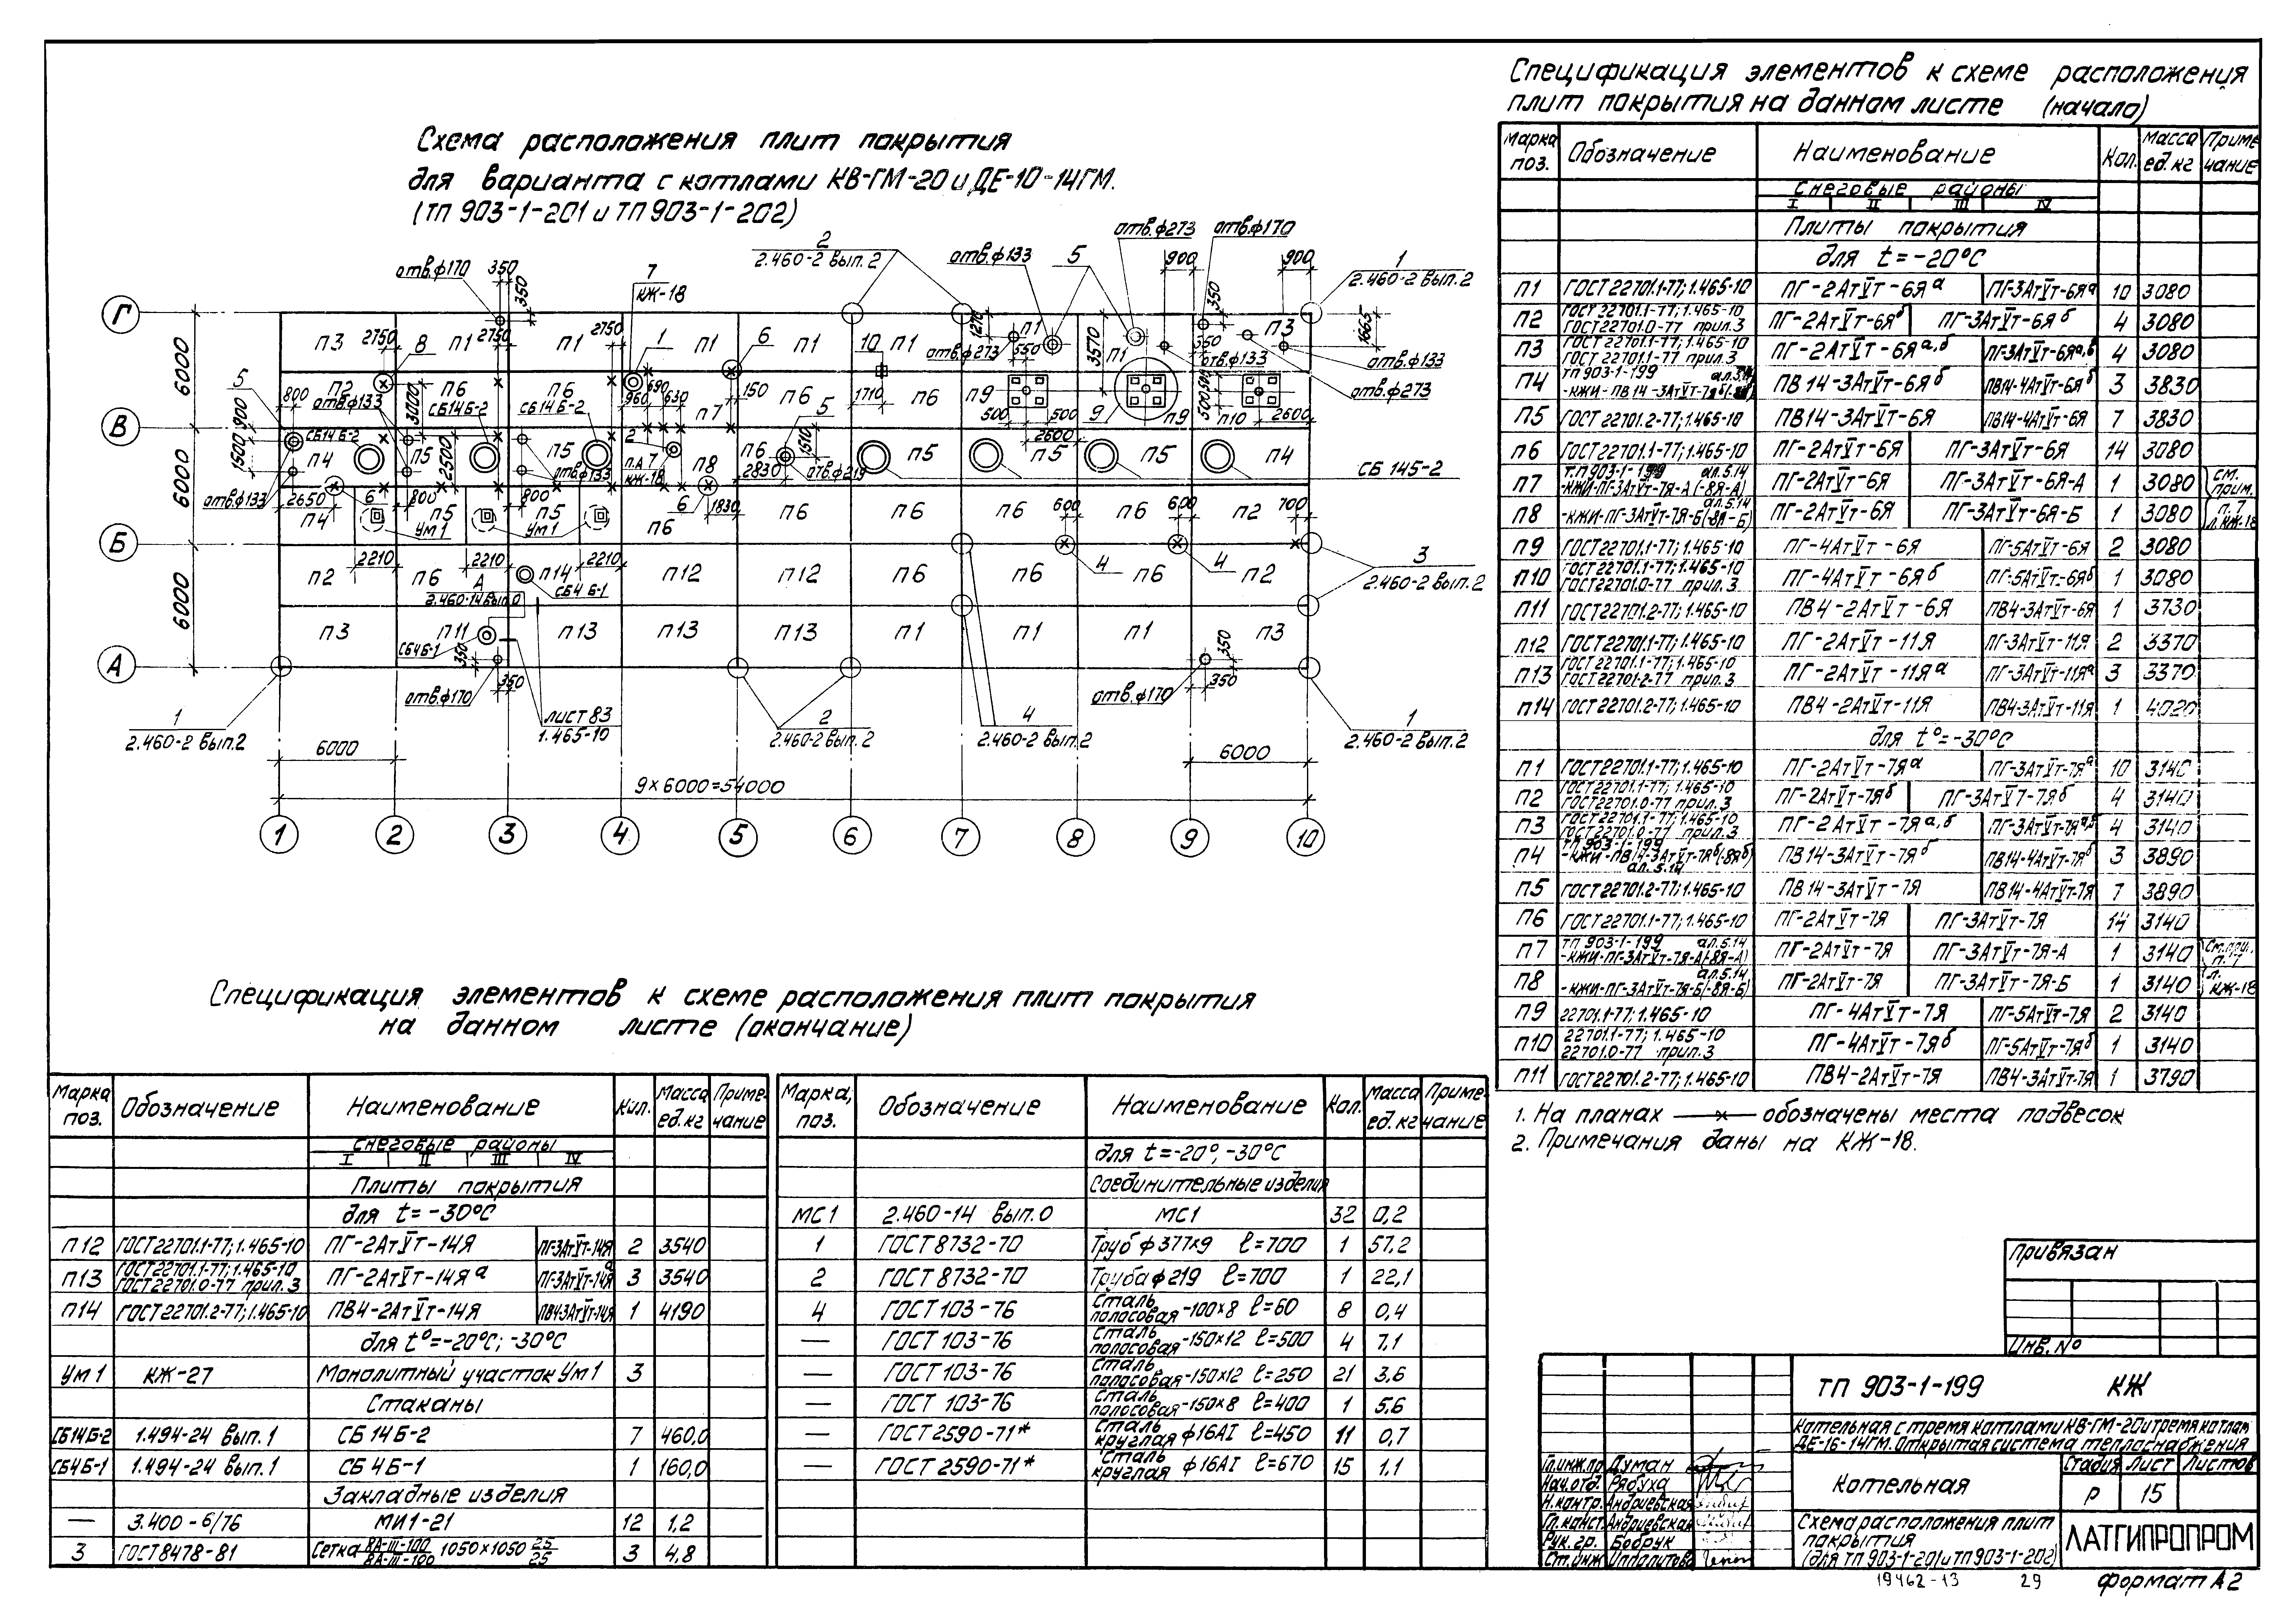 Схема расположения плит покрытия
для варианта с котлами КВ-ГМ-20 и ДЕ-10-14ГМ.
(ТП 903-1-201 и ТП 903-1-202)
отв.ф170
350
350
7
КЖ-18
2
2.460-2 вып.2
отв.ф133
5
отв.ф273
отв.ф170
900
900
1
2.460-2 вып.2
Г
В
Б
А
6000
6000
6000
п3 2750 8 п1 2750 п1 2750 1 п1 6 п1 10 п1 п1 п1 п3
1270
3570
350
1665
отв.ф273
550
отв.ф133
отв.ф133
отв.ф273
5
800
900
1500
п2
отв.ф133
3000
п6
СБ14Б-2
п6
СБ14Б-2
960
690
630
п7
150
п6
1710
п6
п9
500
500
9
п9
п10
2600
СБ14Б-2
п4
п5
2500
п5
отв.ф133
2
п.А 7
КЖ-18
п8
п6
5
1510
2830
отв.ф219
п5
2600
п5
п5
п4
СБ 145-2
отв.ф133
2650
п4
6
800
п5
Ум1
800
п5
Ум1
п6
6
1830
п6
п6
п6
600
п6
600
п2
700
2210
2210
2210
п2
п6
А
2.460-14 вып.0
п14
СБ4Б-1
п12
п12
п6
п6
4
п6
4
п2
3
2.460-2 вып.2
п3
п11
СБ4Б-1
350
п13
п13
п13
п1
п1
п1
п3
350
отв.ф170
350
отв.ф170
350
1
2.460-2 вып.2
лист 83
1.465-10
2
2.460-2 вып.2
4
2.460-2 вып.2
1
2.460-2 вып.2
6000
6000
9×6000=54000
1 2 3 4 5 6 7 8 9 10
Спецификация элементов к схеме расположения
плит покрытия на данном листе (начало)
Марка поз. Обозначение Наименование Кол. Масса ед.кг Примечание
Снеговые районы
I II III IV
Плиты покрытия
для t=-20°С
П1 ГОСТ 22701.1-77; 1.465-10 ПГ-2АтVт-6Яа ПГ-3АтVт-6Яа 10 3080
П2 ГОСТ 22701.1-77; 1.465-10 ГОСТ 22701.0-77 прил.3 ПГ-2АтVт-6Яб ПГ-3АтVт-6Яб 4 3080
П3 ГОСТ 22701.1-77; 1.465-10 ГОСТ 22701.1-77 прил.3 ПГ-2АтVт-6Яа,б ПГ-3АтVт-6Яа,б 4 3080
П4 ТП 903-1-199 ПВ14-3АтVт-6Яб ПВ14-4АтVт-6Яб 3 3830
П5 ГОСТ 22701.2-77; 1.465-10 ПВ14-3АтVт-6Я ПВ14-4АтVт-6Я 7 3830
П6 ГОСТ 22701.1-77; 1.465-10 ПГ-2АтVт-6Я ПГ-3АтVт-6Я 14 3080
П7 Т.П 903-1-199 ал.5.14 -КЖИ-ПГ-3АтVт-7Я-А(-8Я-А) ПГ-2АтVт-6Я ПГ-3АтVт-6Я-А 1 3080 см. прим.
П8 ал.5.14 -КЖИ-ПГ-3АтVт-7Я-Б(-8Я-Б) ПГ-2АтVт-6Я ПГ-3АтVт-6Я-Б 1 3080 п.7 л.КЖ-18
П9 ГОСТ 22701.1-77; 1.465-10 ПГ-4АтVт-6Я ПГ-5АтVт-6Я 2 3080
П10 ГОСТ 22701.1-77; 1.465-10 ГОСТ 22701.0-77 прил.3 ПГ-4АтVт-6Яб ПГ-5АтVт-6Яб 1 3080
П11 ГОСТ 22701.2-77; 1.465-10 ПВ4-2АтVт-6Я ПВ4-3АтVт-6Я 1 3730
П12 ГОСТ 22701.1-77; 1.465-10 ПГ-2АтVт-11Я ПГ-3АтVт-11Я 2 3370
П13 ГОСТ 22701.1-77; 1.465-10 ГОСТ 22701.2-77 прил.3 ПГ-2АтVт-11Яа ПГ-3АтVт-11Яа 3 3370
П14 ГОСТ 22701.2-77; 1.465-10 ПВ4-2АтVт-11Я ПВ4-3АтVт-11Я 1 4020
для t°=-30°С
П1 ГОСТ 22701.1-77; 1.465-10 ПГ-2АтVт-7Яа ПГ-3АтVт-7Яа 10 3140
П2 ГОСТ 22701.1-77; 1.465-10 ГОСТ 22701.0-77 прил.3 ПГ-2АтVт-7Яб ПГ-3АтVт-7Яб 4 3140
П3 ГОСТ 22701.1-77; 1.465-10 ГОСТ 22701.0-77 прил.3 ПГ-2АтVт-7Яа,б ПГ-3АтVт-7Яа,б 4 3140
П4 ТП 903-1-199 -КЖИ-ПВ14-3АтVт-7Яб(-8Яб) ал.5.14 ПВ14-3АтVт-7Яб ПВ14-4АтVт-7Яб 3 3890
П5 ГОСТ 22701.2-77; 1.465-10 ПВ14-3АтVт-7Я ПВ14-4АтVт-7Я 7 3890
П6 ГОСТ 22701.1-77; 1.465-10 ПГ-2АтVт-7Я ПГ-3АтVт-7Я 14 3140
П7 ТП 903-1-199 ал.5.14 -КЖИ-ПГ-3АтVт-7Я-А(-8Я-А) ПГ-2АтVт-7Я ПГ-3АтVт-7Я-А 1 3140 См.прим. п.7
П8 ал.5.14 -КЖИ-ПГ-3АтVт-7Я-Б(-8Я-Б) ПГ-2АтVт-7Я ПГ-3АтVт-7Я-Б 1 3140 л. КЖ-18
П9 22701.1-77; 1.465-10 ПГ-4АтVт-7Я ПГ-5АтVт-7Я 2 3140
П10 22701.1-77; 1.465-10 22701.0-77 прил.3 ПГ-4АтVт-7Яб ПГ-5АтVт-7Яб 1 3140
П11 ГОСТ 22701.2-77; 1.465-10 ПВ4-2АтVт-7Я ПВ4-3АтVт-7Я 1 3790
1. На планах —×— обозначены места подвесок
2. Примечания даны на КЖ-18.
Спецификация элементов к схеме расположения плит покрытия
на данном листе (окончание)
Марка поз. Обозначение Наименование Кол. Масса ед.кг Примечание
Снеговые районы
I II III IV
Плиты покрытия
для t=-30°С
П12 ГОСТ 22701.1-77; 1.465-10 ПГ-2АтVт-14Я ПГ-3АтVт-14Я 2 3540
П13 ГОСТ 22701.1-77; 1.465-10 ГОСТ 22701.0-77 прил.3 ПГ-2АтVт-14Яа ПГ-3АтVт-14Яа 3 3540
П14 ГОСТ 22701.2-77; 1.465-10 ПВ4-2АтVт-14Я ПВ4-3АтVт-14Я 1 4190
для t°=-20°С; -30°С
Ум1 КЖ-27 Монолитный участок Ум1 3
Стаканы
СБ14Б-2 1.494-24 вып.1 СБ14Б-2 7 460,0
СБ4Б-1 1.494-24 вып.1 СБ4Б-1 1 160,0
Закладные изделия
— 3.400-6/76 МИ1-21 12 1,2
3 ГОСТ 8478-81 Сетка 8А-III-100/8А-III-100 1050×1050 25/25 3 4,8
Марка, поз. Обозначение Наименование Кол. Масса ед.кг Примечание
для t=-20°, -30°С
Соединительные изделия
МС1 2.460-14 вып.0 МС1 32 0,2
1 ГОСТ 8732-70 Труб ф377×9 l=700 1 57,2
2 ГОСТ 8732-70 Труба ф219 l=700 1 22,1
4 ГОСТ 103-76 Сталь полосовая -100×8 l=60 8 0,4
— ГОСТ 103-76 Сталь полосовая -150×12 l=500 4 7,1
— ГОСТ 103-76 Сталь полосовая -150×12 l=250 21 3,6
— ГОСТ 103-76 Сталь полосовая -150×8 l=400 1 5,6
— ГОСТ 2590-71* Сталь круглая ф16АI l=450 11 0,7
— ГОСТ 2590-71* Сталь круглая ф16АI l=670 15 1,1
Привязан
Инв.№
ТП 903-1-199 КЖ
Котельная с тремя котлами КВ-ГМ-20 и тремя котлам
ДЕ-16-14ГМ. Открытая система теплоснабжения
Котельная
Стадия Лист Листов
Р 15
Схема расположения плит
покрытия
(для ТП 903-1-201 и ТП 903-1-202)
ЛАТГИПРОПРОМ
Гл.инж.пр Думан
Нач.отд. Рябуха
Н.контр. Андриевская
Гл.конст. Андриевская
Рук.гр. Бобрук
Ст.инж Ипполитова
19462-13 29
формат А2